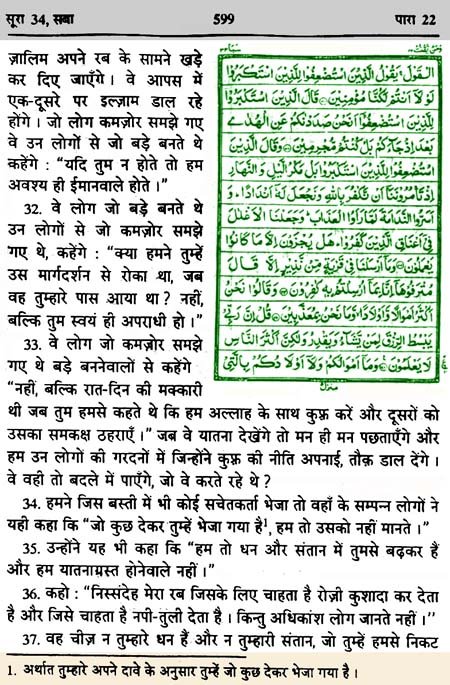 सूरा 34, सबा
599
पारा 22
ज़ालिम अपने रब के सामने खड़े
कर दिए जाएँगे। वे आपस में
एक-दूसरे पर इल्ज़ाम डाल रहे
होंगे। जो लोग कमज़ोर समझे गए
वे उन लोगों से जो बड़े बनते थे
कहेंगे : “यदि तुम न होते तो हम
अवश्य ही ईमानवाले होते।”
32. वे लोग जो बड़े बनते थे
उन लोगों से जो कमज़ोर समझे
गए थे, कहेंगे : “क्या हमने तुम्हें
उस मार्गदर्शन से रोका था, जब
वह तुम्हारे पास आया था? नहीं,
बल्कि तुम स्वयं ही अपराधी हो।”
33. वे लोग जो कमज़ोर समझे
गए थे बड़े बननेवालों से कहेंगे :
“नहीं, बल्कि रात-दिन की मक्कारी
थी जब तुम हमसे कहते थे कि हम अल्लाह के साथ कुफ़्र करें और दूसरों को
उसका समकक्ष ठहराएँ।” जब वे यातना देखेंगे तो मन ही मन पछताएँगे और
हम उन लोगों की गरदनों में जिन्होंने कुफ़्र की नीति अपनाई, तौक़ डाल देंगे।
वे वही तो बदले में पाएँगे, जो वे करते रहे थे?
34. हमने जिस बस्ती में भी कोई सचेतकर्ता भेजा तो वहाँ के सम्पन्न लोगों ने
यही कहा कि “जो कुछ देकर तुम्हें भेजा गया है¹, हम तो उसको नहीं मानते।”
35. उन्होंने यह भी कहा कि “हम तो धन और संतान में तुमसे बढ़कर हैं
और हम यातनाग्रस्त होनेवाले नहीं।”
36. कहो : “निस्संदेह मेरा रब जिसके लिए चाहता है रोज़ी कुशादा कर देता
है और जिसे चाहता है नपी-तुली देता है। किन्तु अधिकांश लोग जानते नहीं।”
37. वह चीज़ न तुम्हारे धन हैं और न तुम्हारी संतान, जो तुम्हें हमसे निकट
1. अर्थात तुम्हारे अपने दावे के अनुसार तुम्हें जो कुछ देकर भेजा गया है।
القول يقول الذين استضعفوا للذين استكبروا
لولا انتم لكنا مؤمنين قال الذين استكبروا
للذين استضعفوا انحن صددنكم عن الهدى
بعد اذ جاءكم بل كنتم مجرمين وقال الذين
استضعفوا للذين استكبروا بل مكر اليل والنهار
اذ تامروننا ان نكفر بالله ونجعل له اندادا و
اسروا الندامة لما راوا العذاب وجعلنا الاغلل
في اعناق الذين كفروا هل يجزون الا ما كانوا
يعملون وما ارسلنا في قرية من نذير الا قال
مترفوها انا بما ارسلتم به كفرون وقالوا نحن
اكثر اموالا واولادا وما نحن بمعذبين قل ان ربي
يبسط الرزق لمن يشاء ويقدر ولكن اكثر الناس
لا يعلمون وما اموالكم ولا اولادكم بالتي